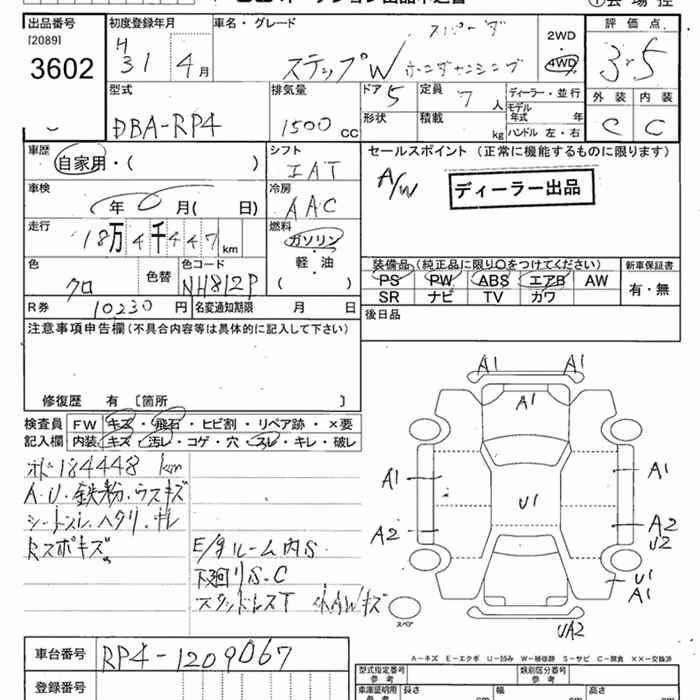 出品番号
[2089]
3602
初度登録年月
H 31 4月
車名・グレード
スパーダ
ステップW ホンダセンシング
2WD
4WD
評価点
3.5
外装 内装
C C
型式
DBA-RP4
排気量
1500 cc
ドア 5
定員 7人
形状
積載 kg
ディーラー・並行
モデル年式 年
ハンドル 左・右
車歴
自家用・( )
シフト
IAT
車検
年 月( 日)
冷房
AAC
走行
18万4千447km
燃料
ガソリン
軽・油
( )
色
クロ
色替
色コード
NH812P
R券 10230円
名変通知期限 月 日
セールスポイント (正常に機能するものに限ります)
A/W
ディーラー出品
装備品(純正品に限り○をつけてください)
新車保証書
PS PW ABS エアB AW
SR ナビ TV カワ
有・無
後日品
注意事項申告欄(不具合内容等は具体的に記入して下さい)
修復歴 有〔箇所 〕
検査員
記入欄
FW キズ・飛石・ヒビ割・リペア跡・×要
内装・キズ・汚レ・コゲ・穴・スレ・キレ・破レ
184448 km
A・U・鉄粉・ウスキズ
シート
キズ
E/gルーム内S
下廻りS・C
スタッドレスT AWキズ
A1 A1
A1
A1 A1
U1
A2 A2
U2
U1
A1
UA2
スペア
A-キズ E-エクボ U-凹み W-補修跡 S-サビ C-腐食 ××-交換済
車台番号
RP4-1209067
登録番号
型式指定番号 参考
類別区分番号 参考
車庫証明用参考
長さ cm
幅 cm
高さ cm